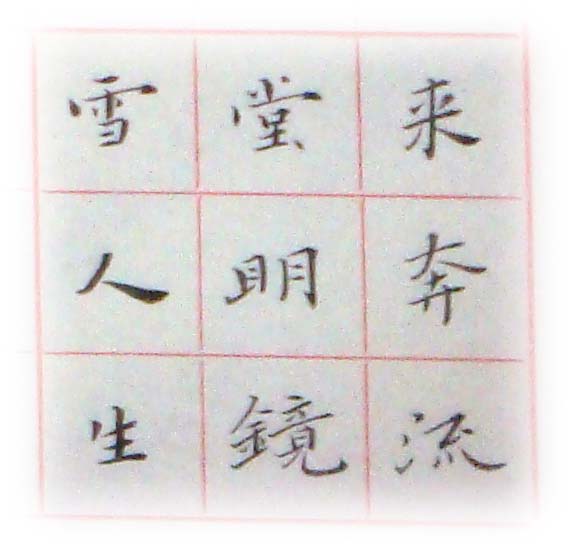 来奔流
堂明鏡
雪人生